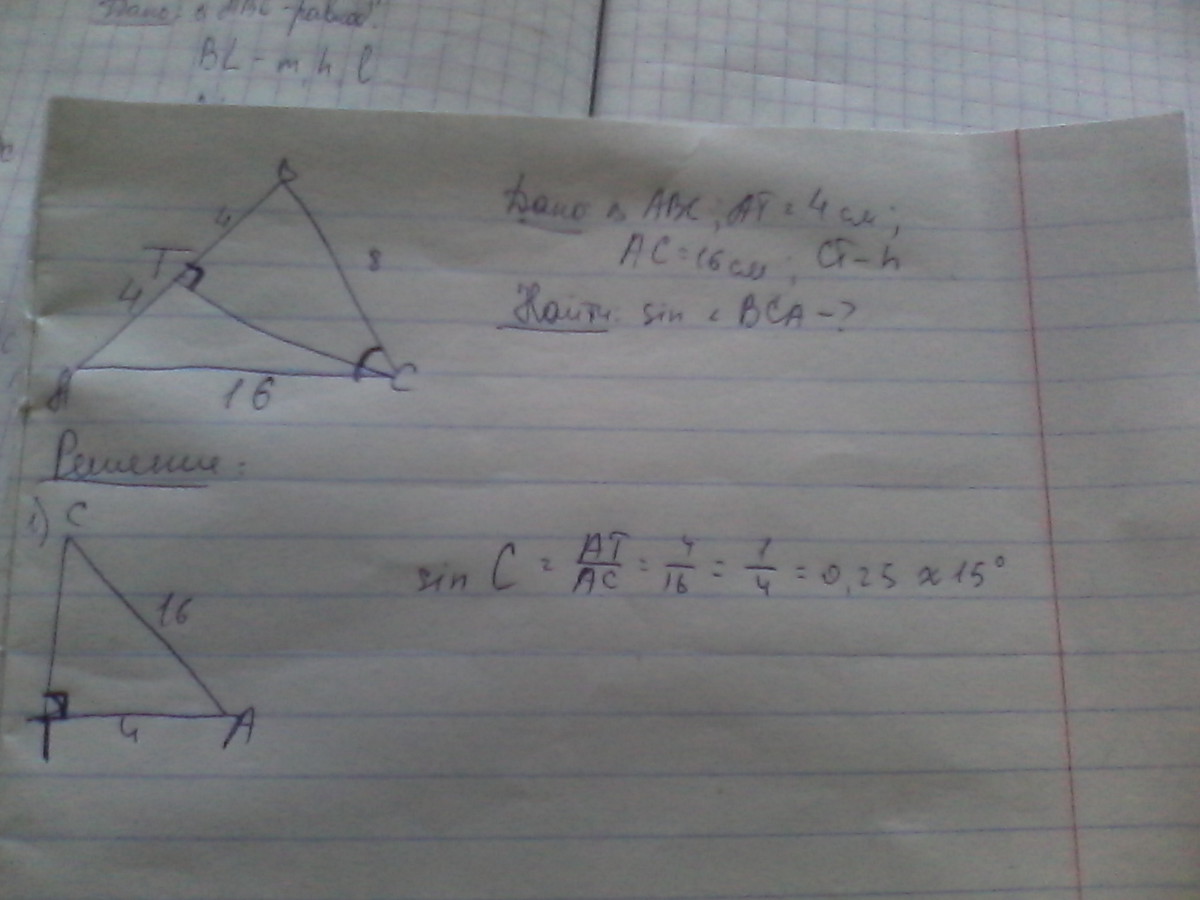 Дано: △ ABC - равноб.
BL - m, h, l
B
4
T
4
8
A
16
C
Дано △ ABC; AT = 4 см;
AC = 16 см; CT - h
Найти: sin ∠ BCA - ?
Решение:
1) C
16
T
4
A
sin C = AT/AC = 4/16 = 1/4 = 0,25 ≈ 15°